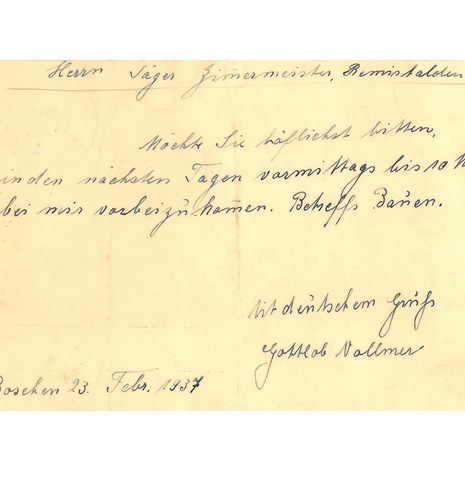 Herrn Jäger Zimmermeister, Remshalden
Möchte Sie höflichst bitten,
in den nächsten Tagen vormittags bis 10
bei mir vorbeizukommen. Betreffs Bauen.
Mit deutschem Gruß
Gottlob Vollmer
23. Febr. 1937